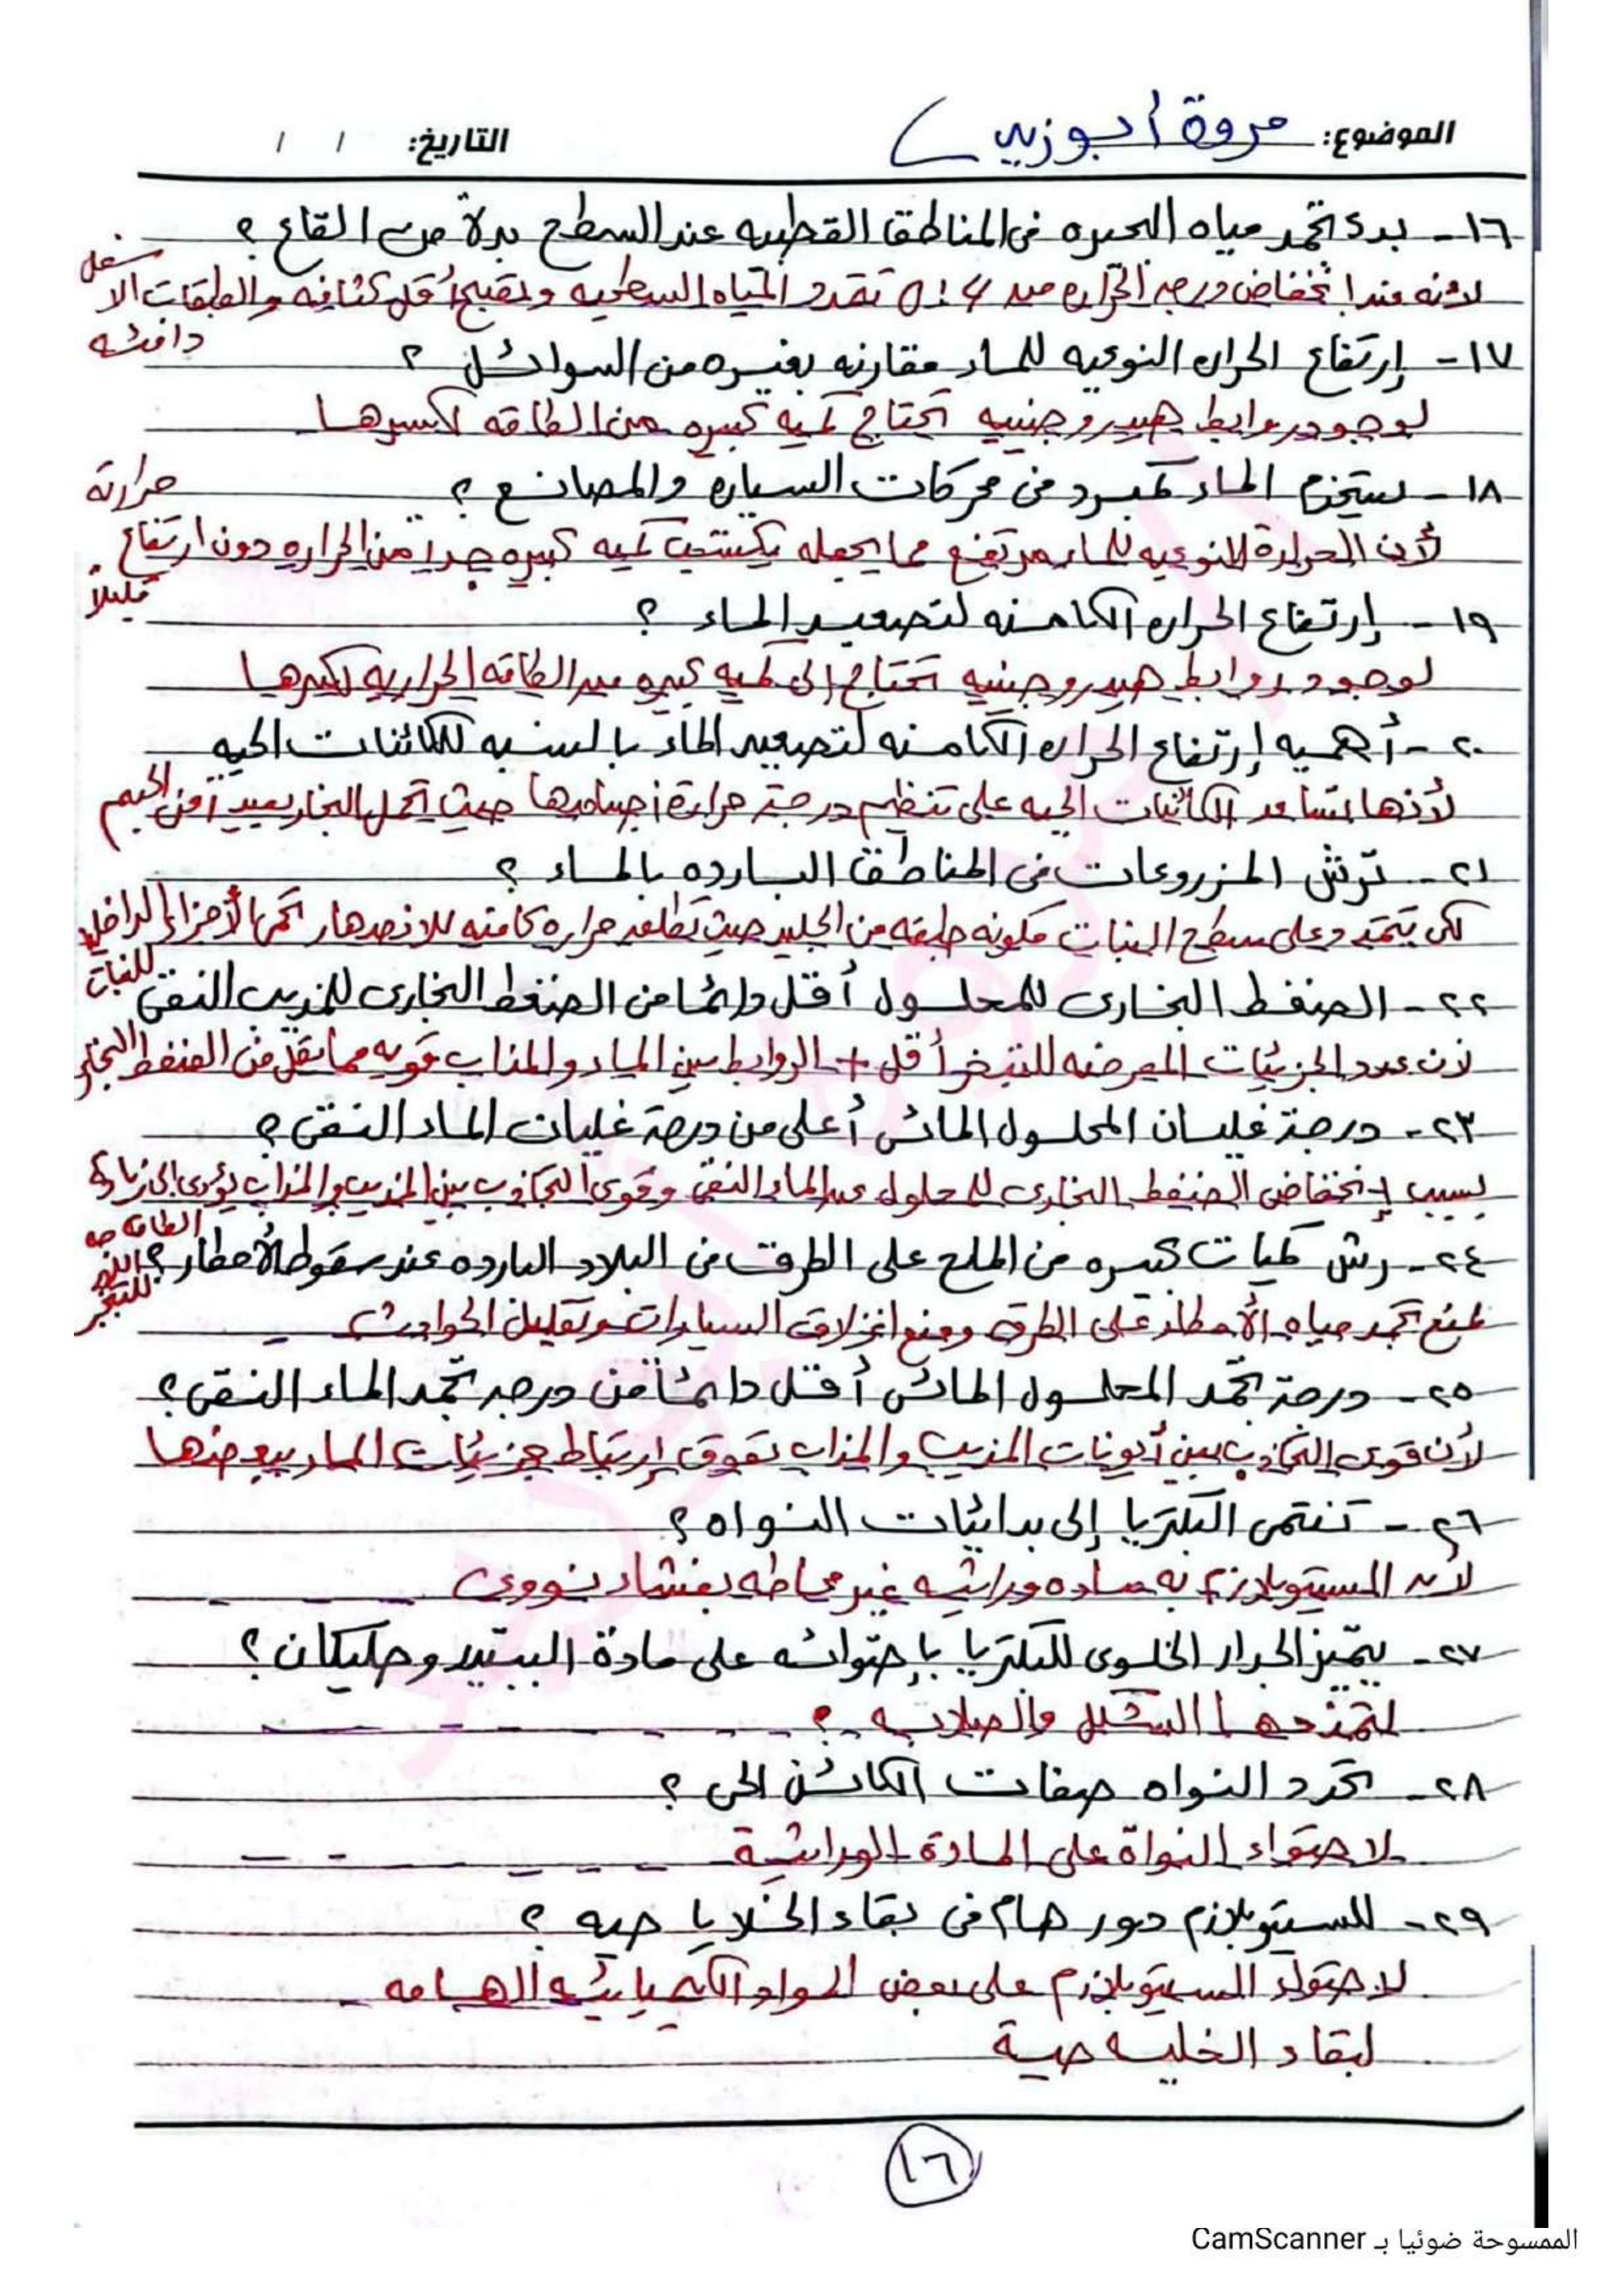 الموضوع: مروة أبوزيد التاريخ: / /
١٦- بدء تجمد مياه البحيره فى المناطق القطبيه عند السطح بدلاً من القاع ؟
لأنه عند إنخفاض درجه الحراره من 4 : 0 تتمدد المياه السطحيه وتصبح أقل كثافه والطبقات الأسفل
دافئه
١٧- إرتفاع الحراره النوعيه للماء مقارنه بغيره من السوائل ؟
لوجود روابط هيدروجنييه تحتاج كميه كبيره من الطاقه لكسرها
١٨- يستخدم الماء كمبرد فى محركات السياره والمصانع ؟
لأن الحرارة النوعيه للماء مرتفع مما يجعله يكتسب كميه كبيره جداً من الحراره دون ارتفاع حرارته
قليلاً
١٩- إرتفاع الحراره الكامنه لتصعيد الماء ؟
لوجود روابط هيدروجنييه تحتاج إلى كميه كبيره من الطاقه الحراريه لكسرها
٢٠- أهميه إرتفاع الحراره الكامنه لتصعيد الماء بالنسبه للكائنات الحيه
لأنها تساعد الكائنات الحيه على تنظيم درجة حرارة أجسامها حيث تحمل البخار بعيد آ عن الجسم
٢١- ترش المزروعات فى المناطق البارده بالماء ؟
لكى يتجمد على سطح النبات مكونه طبقه من الجليد حيث تطلق حراره كامنه للانصهار تحمى الأجزاء الداخليه
للنبات
٢٢- الضغط البخارى للمحلول أقل دائما من الضغط البخارى للمذيب النقى
لأن عدد الجزيئات المعرضه للتبخر أقل + الروابط بين المياه والمذاب قويه مما يقلل من الضغط البخارى
٢٣- درجة غليان المحلول المائى أعلى من درجة غليان الماء النقى ؟
بسبب إنخفاض الضغط البخارى للمحلول عن الماء النقى وقوى التجاذب بين المذيب والمذاب يؤدى إلى زيادة
الطاقه
للتبخير
٢٤- رش كميات كبيره من الملح على الطرق فى البلاد البارده عند سقوط الأمطار ؟
لمنع تجمد مياه الأمطار على الطرق ومنع انزلاق السيارات وتقليل الحوادث
٢٥- درجة تجمد المحلول المائى أقل دائماً من درجه تجمد الماء النقى ؟
لأن قوى التجاذب بين أيونات المذيب والمذاب تعوق إرتباط جزيئات الماء ببعضها
٢٦- تنتمى البكتريا إلى بدائيات النواه ؟
لأن السيتوبلازم به ماده وراثيه غير محاطه بغشاء نووى
٢٧- يتميز الجدار الخلوى للبكتريا بإحتوائه على مادة الببتيدوجليكان ؟
لتمنحها الشكل والصلابه ؟
٢٨- تحدد النواه صفات الكائن الحى ؟
لاحتواء النواة على المادة الوراثية
٢٩- للسيتوبلازم دور هام فى بقاء الخلايا حيه ؟
لاحتواء السيتوبلازم على بعض المواد الكيميائيه الهامه
لبقاء الخليه حية
١٦
الممسوحة ضوئيا بـ CamScanner